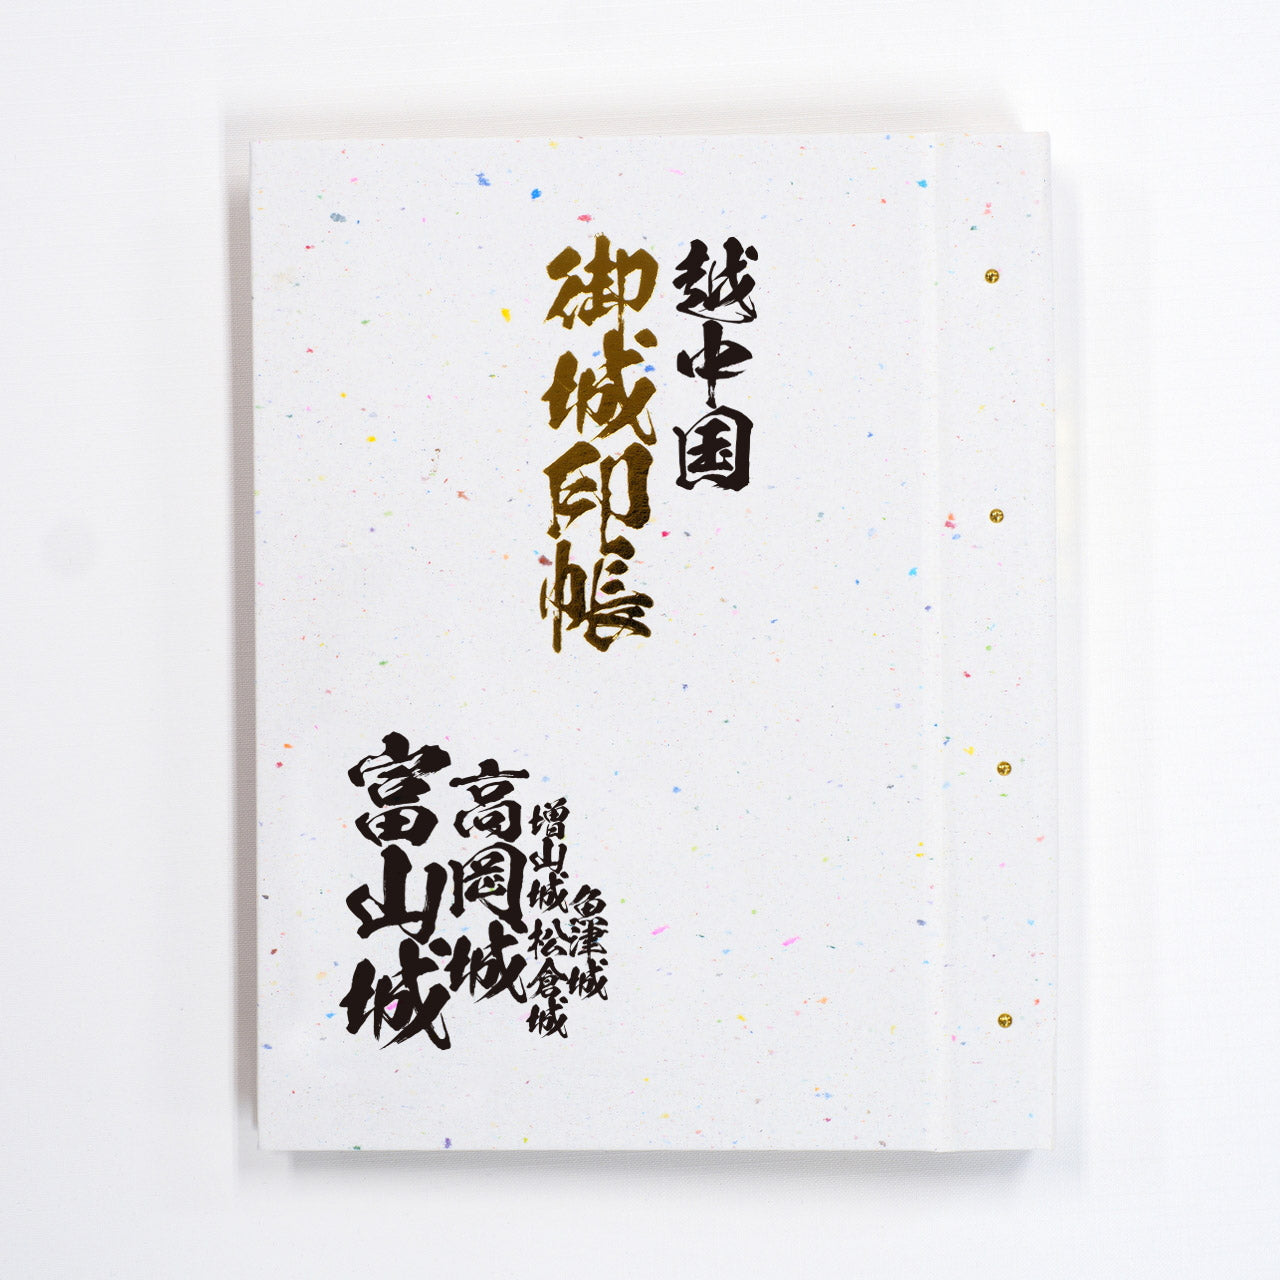 越中国
御城印帳
魚津城
増山城 松倉城
高岡城
富山城